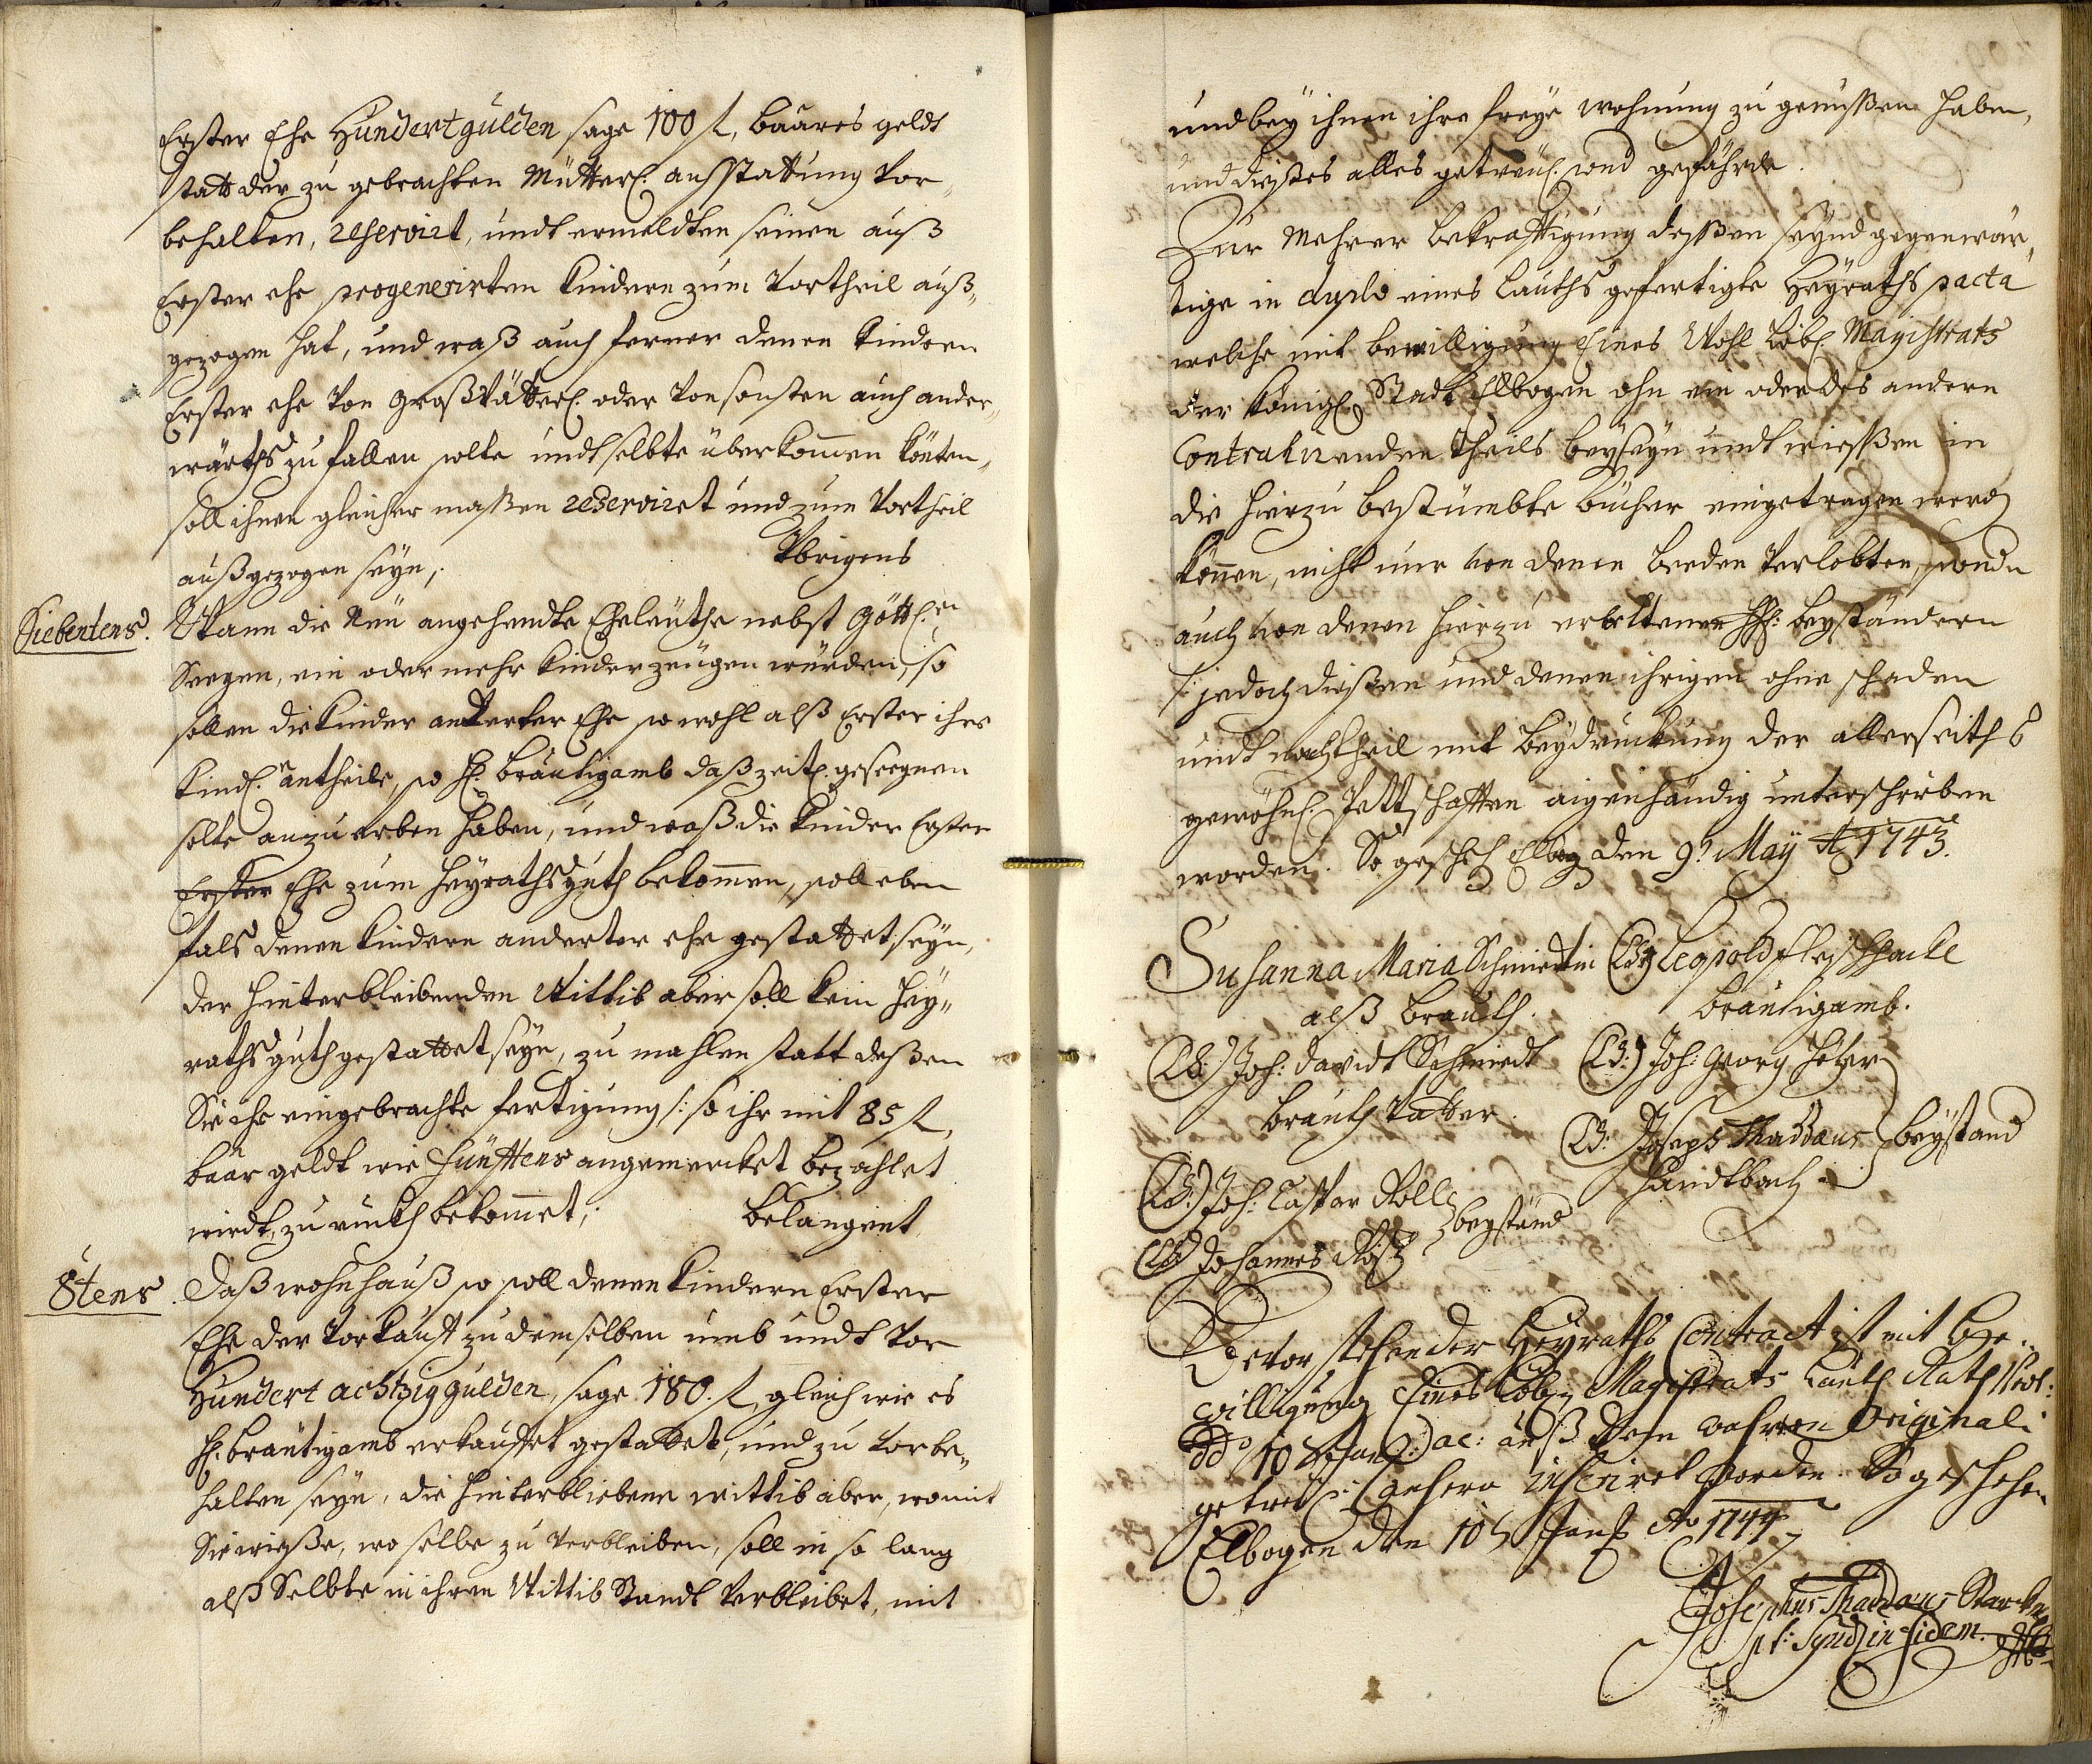 Erster Ehe Hundert gulden sage 100 f, baares geldt
statt der zu gebrachten Mütterl: ausstattung vor-
behalten, reservirt, undt ermeldten seinen auß
Erster ehe progenerirten Kindern zum Vortheil auß-
gezogen hat, und waß auch ferner denen Kindern
Erster ehe von Großvätterl: oder von sonsten auch ander-
wärths zu fallen solte undt selbte überkommen könten,
soll ihnen gleicher maßen reserviret und zum Vortheil
außgezogen seyn,. Übrigens
Siebentens. Wann die Neu angehendte Eheleuthe nebst Göttl:en
Seegen, ein oder mehr Kinder zeügen würden, so
sollen die Kinder anderter Ehe so wohl alß Erster ihre
Kindl: antheile, so H: Bräutigamb daß zeitl: geseegnen
solte anzu erben haben, und waß die Kinder Erster
Erster Ehe zum Heyrathsguth bekommen, soll eben
fals denen Kindern anderter ehe gestattet seyn,
der hinterbleibenden Wittib aber soll kein Hey-
rathsguth gestattet seyn, zu mahlen statt deßen
Sie ihr eingebrachte fertigung /: so ihr mit 85 f,
baar geldt wie Fünfftens angemercket bezahlet
wirdt, zu ruckh bekommet,. Belangent
8tens. Daß wohnhauß so soll denen Kindern Erster
Ehe der Vorkauff zu demselben umb undt vor
Hundert achtzig gulden, sage 180. f, gleich wie es
H: Bräutigamb erkauffet gestattet, und zu vorbe-
halten seyn, die hinterbliebene wittib aber, womit
Sie wieße, wo selbe zu verbleiben, soll in so lang
alß Selbte in ihren Wittib Standt verbleibet, mit
und bey ihnen ihre freye wohnung zu genüßen haben,
und dießes alles getreul: sond gefährde.
Zur Mehrer bekräfftigung deßßen seynd gegenwär-
tige in duplo eines lauths gefertigte Heyraths pacta
welche mit bewilligung Eines Wohl Löbl: Magistrats
der Königl: Stadt Elbogen ohn ein oder des andern
Contrahirenden Theils beyseyn undt wießßen in
die hierzu bestümbte bücher eingetragen werd
können, nicht nur von denen beeden Verlobten, sondn
auch von denen hierzu erbettenen HH: beyständern
/: jedoch dießen und denen ihrigen ohne schaden
undt nachtheil mit beydruckung der allerseiths
gewöhnl: Pettschafften aigenhändig unterschrieben
worden. So gescheh Elbog den 9t May Ao 1743.
Susanna Maria Schmiedtin (LS:) Leopold
alß Brauth. Bräutigamb.
(LS:) Joh: Davidt Schmiedt (LS:) Joh: Georg
Brauth Vatter.
(LS: Joseph Thaddaus beystand
(LS:) Joh: Caspar
beystand
(LS:) Johannes
Bevorstehender Heyraths Contract ist mit be-
willigung Eines Löbl: Magistrats lauth Rath Prot:
ddo 10 ac: auß dem wahren Original
getreul: anhero inserirt worden. So geschehen
Elbogen den 10t Ao 1744
Josephus Thaddaus
Synd in fidem.